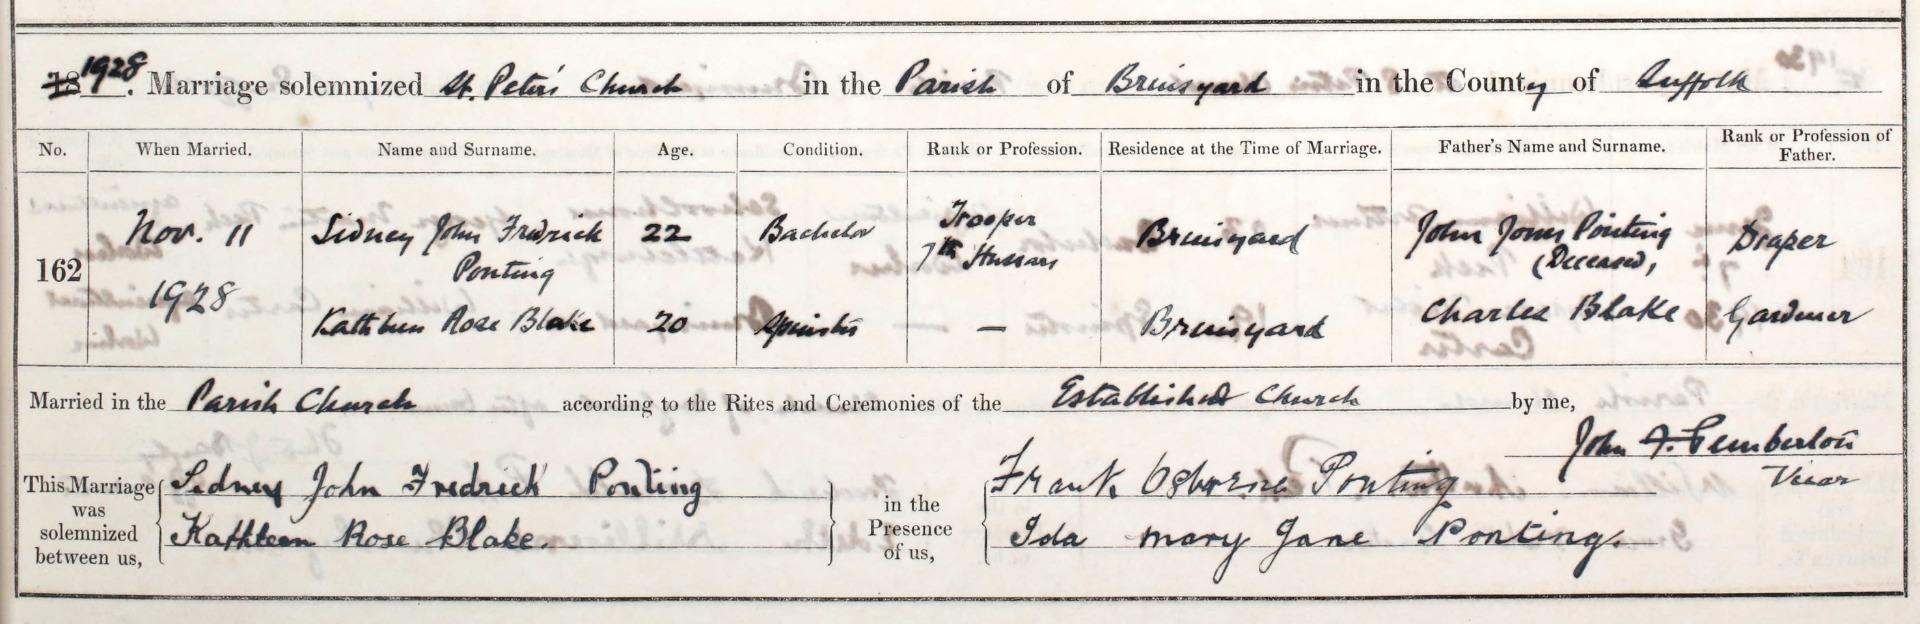 18 1928. Marriage solemnized St. Peter's Church in the Parish of Bruisyard in the County of Suffolk
No. When Married. Name and Surname. Age. Condition. Rank or Profession. Residence at the Time of Marriage. Father's Name and Surname. Rank or Profession of Father.
162 Nov. 11 1928
Sidney John Fredrick Ponting 22 Bachelor Trooper 7th Hussars Bruisyard John Jones Ponting (Deceased) Draper
Kathleen Rose Blake 20 Spinster — Bruisyard Charles Blake Gardener
Married in the Parish Church according to the Rites and Ceremonies of the Established Church by me,
John F. Pemberton
Vicar
This Marriage was solemnized between us,
Sidney John Fredrick Ponting
Kathleen Rose Blake.
in the Presence of us,
Frank Osborne Ponting
Ida mary Jane Ponting.